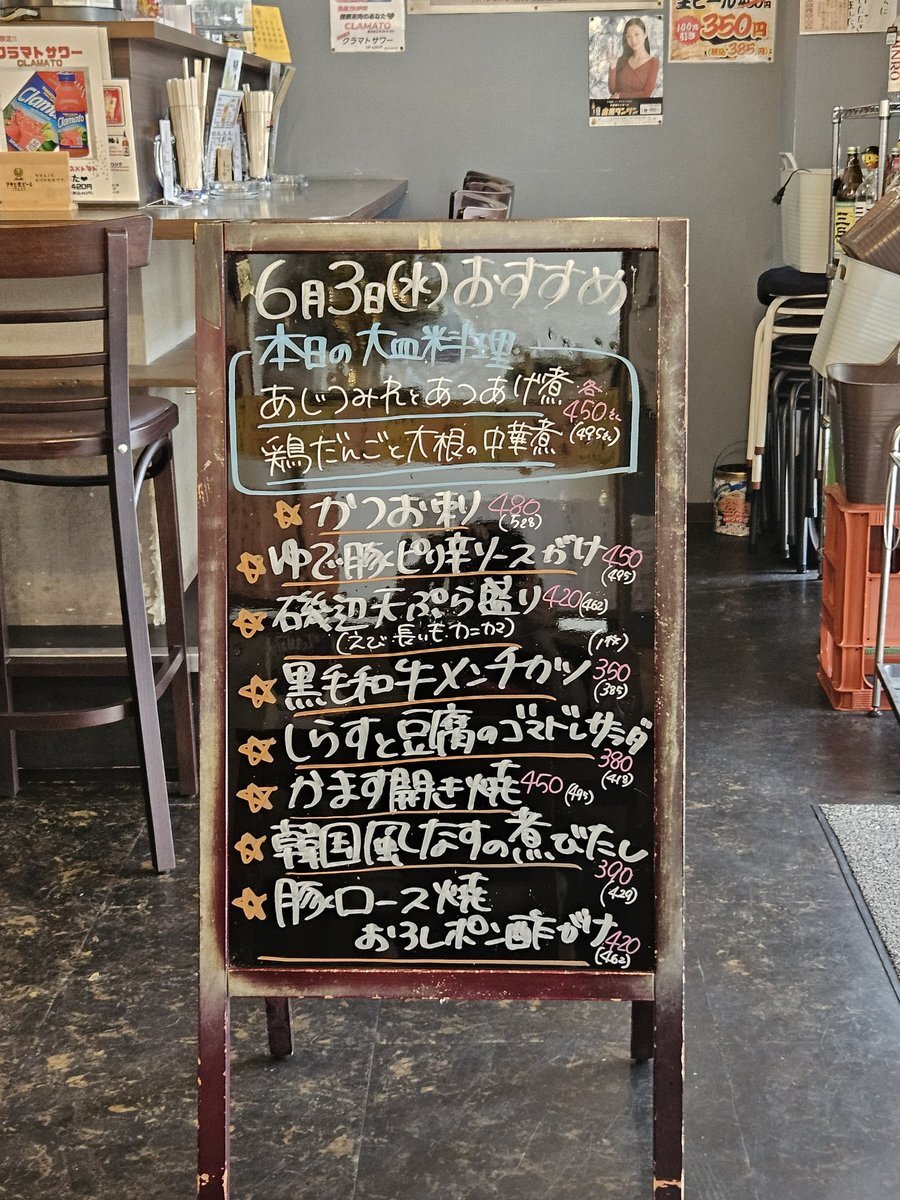 クラマトサワー
CLAMATO
Clamato
420円
CLAMATO
クラマトサワー
生ビール
350円
(税込385円)
6月3日(水)おすすめ
本日の大皿料理
あじつみれとあつあげ煮
各
450
(495)
鶏だんごと大根の中華煮
がつお刺り 480
(528)
ゆで豚ピリ辛ソースがけ 450
(495)
磯辺天ぷら盛り 420(462)
(えび 長いも カニカマ)
(1ケ)
黒毛和牛メンチカツ 350
(385)
しらすと豆腐のゴマドレサラダ
380
(418)
かます開き焼 450(495)
韓国風しなすの煮びたし
390
(429)
豚ロース焼
おろしポン酢がけ 420
(462)